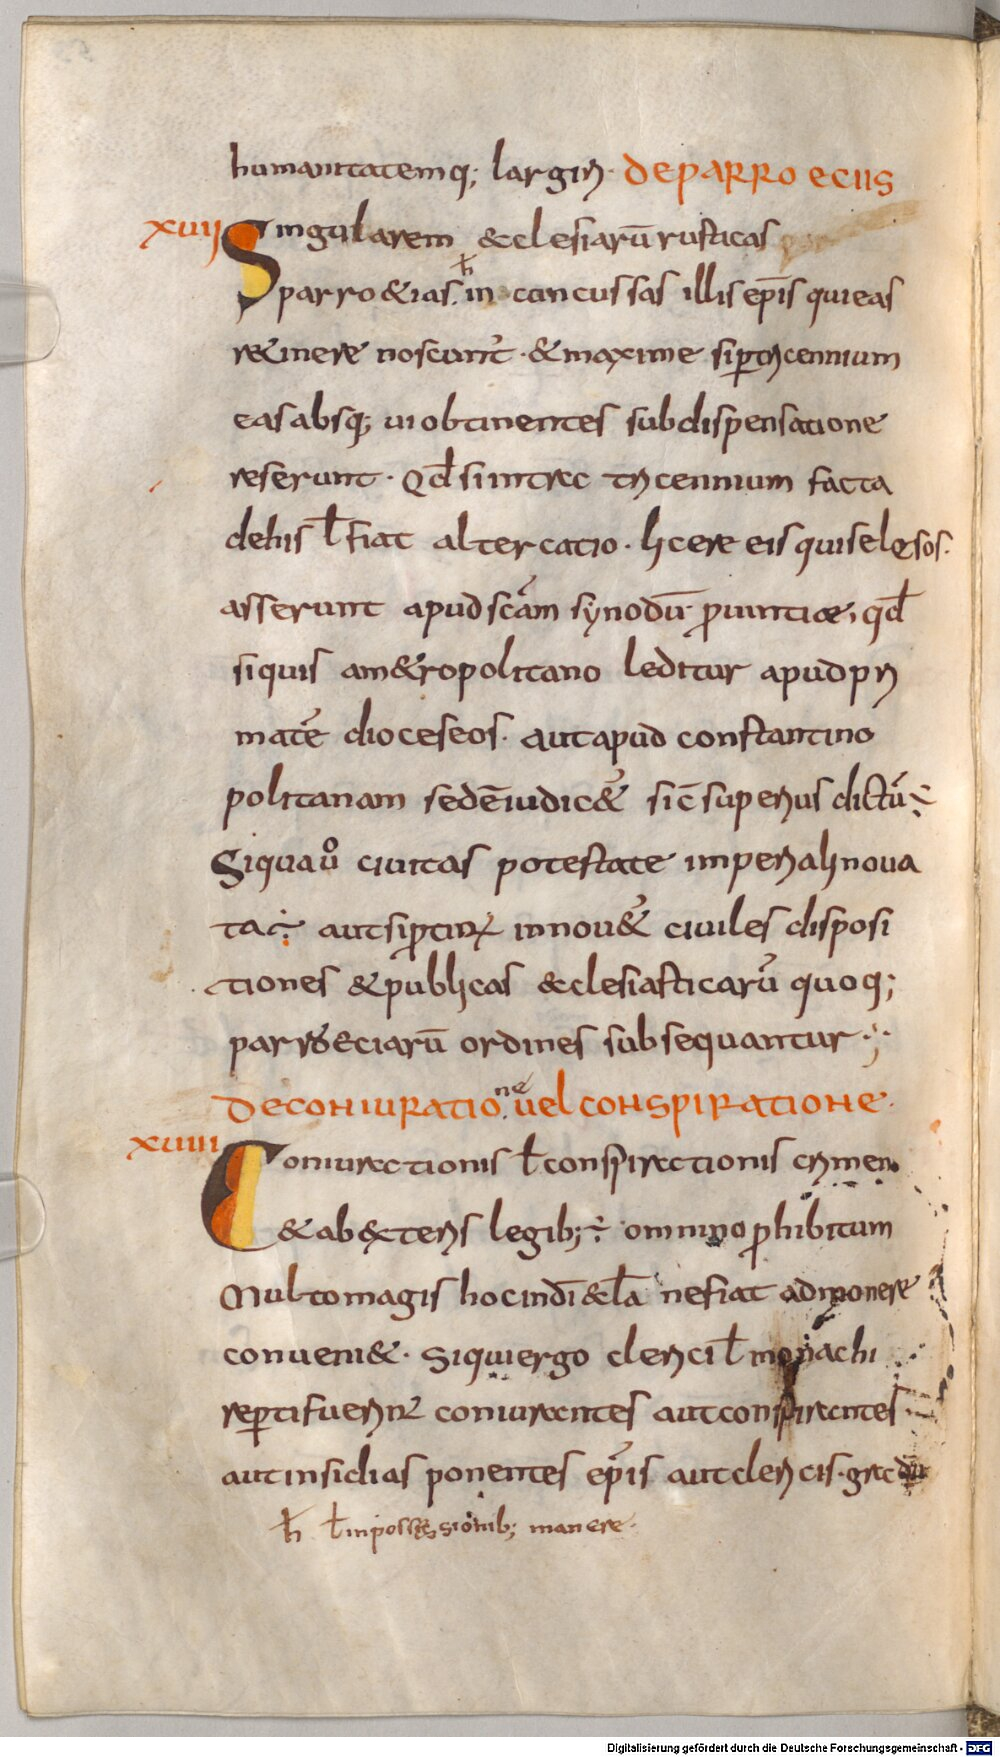 humanitatemq; largiri· DE PARROECIIS
XVII Singularem ecclesiarū rusticas
parroetias. ħ inconcussas illis ep̄is qui eas
retinere noscunt̉· & maxime si ꝑ tricennium
eas absq; ui obtinentes sub dispensatione
reserunt· Qd̄ si intrac tricennium facta
de his ł fiat altercatio· licere eis qui se lęsos·
asserunt apud sc̄am synodū ꝓuintiae, qd̄
si quis a metropolitano leditur apud pri
matē dioceseos· aut apud constantino
politanam sedē iudicet̉ sic̄ superius dictū ÷
Si qua uo civitas potestate imperiali noua
ta ÷ aut si ꝓtinus innouet̉ ciuiles disposi
tiones & publicas ecclesiasticarū quoq;
parroeciarū ordines subsequantur·
DE CONIURATIONE VEL CONSPIRATIONE·
XVIII Coniuractionis ł conspiractionis crimen
& ab exteris legib; ÷ omnino ꝓhibitum
Multo magis hoc in dī ecl̄a ne fiat admonere
conuenit· Si qui ergo clerici ł monachi
repti fuerint coniurantes aut conspirantes
aut insidias ponentes ep̄is aut clericis· gradu
ħ ł in possessionib; manere·
Digitalisierung gefördert durch die Deutsche Forschungsgemeinschaft - DFG